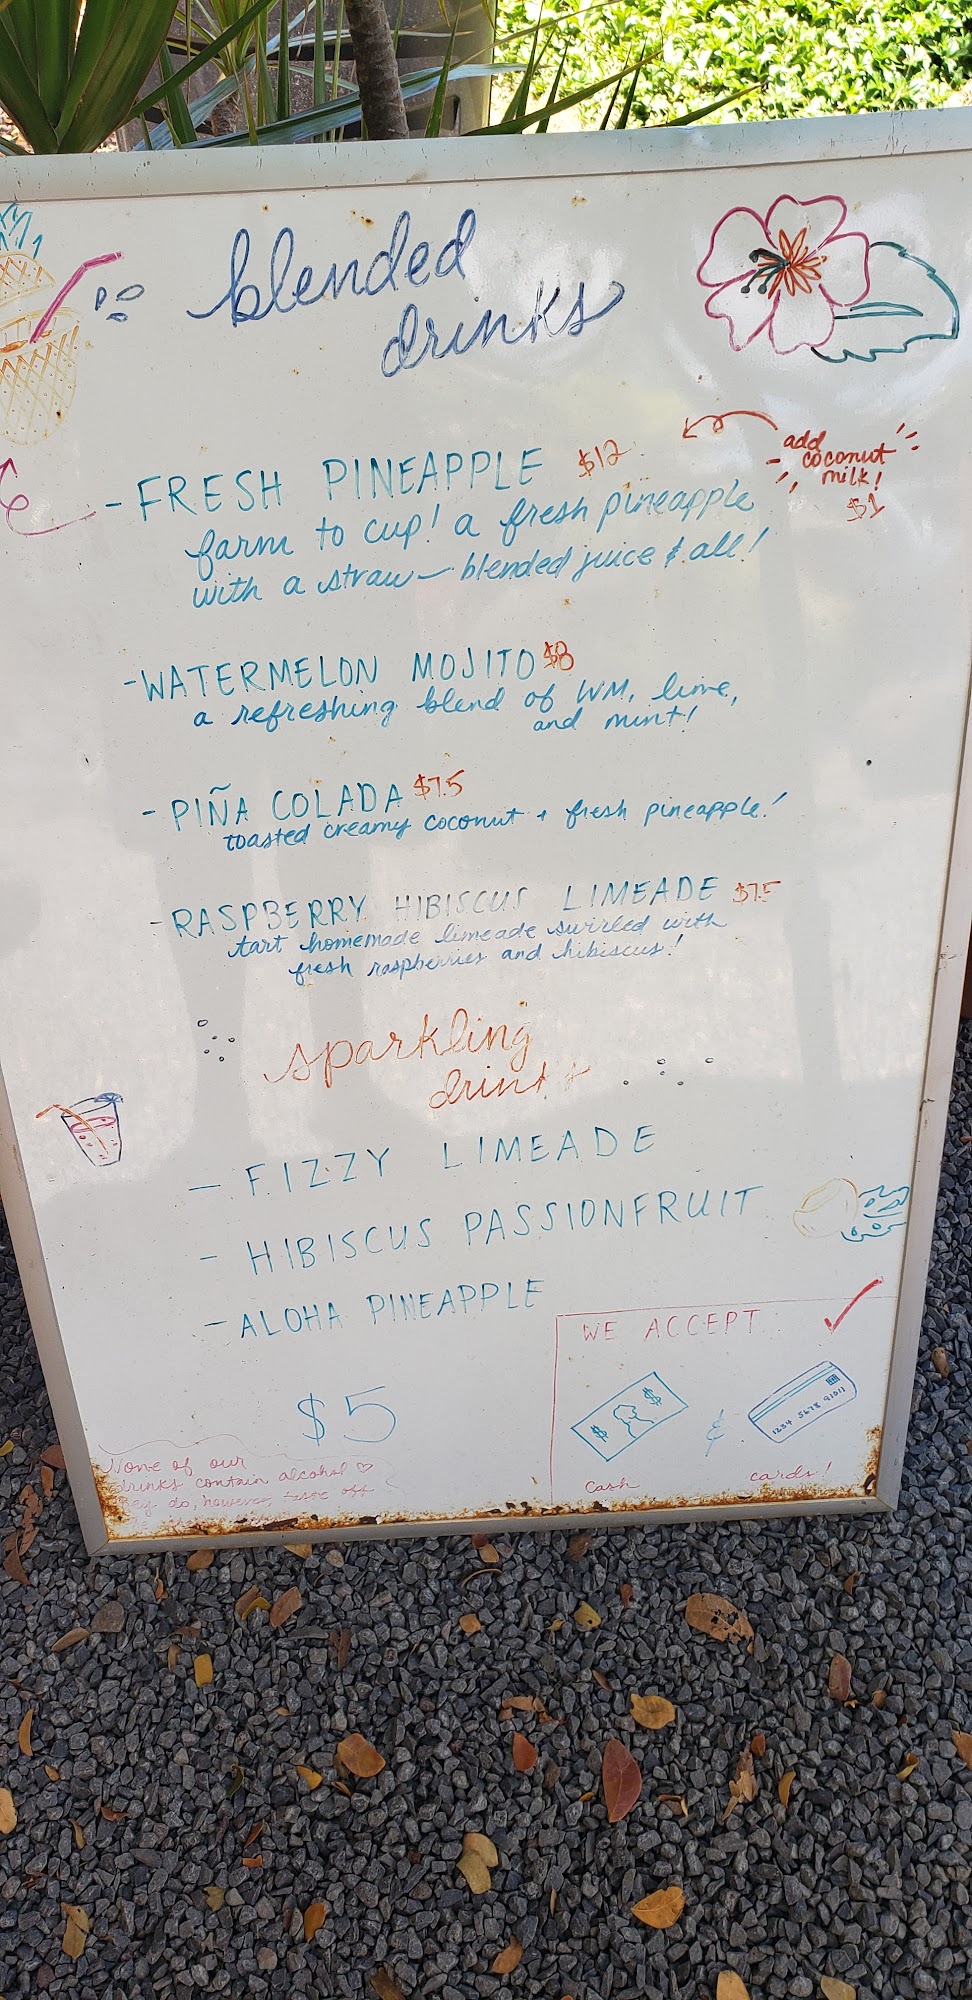 blended
drinks
- FRESH PINEAPPLE $12
add
coconut
milk!
$1
farm to cup! a fresh pineapple
with a straw - blended juice & all!
- WATERMELON MOJITO $8
a refreshing blend of WM, lime,
and mint!
- PIÑA COLADA $7.5
toasted creamy coconut + fresh pineapple!
- RASPBERRY HIBISCUS LIMEADE $7.5
tart homemade limeade swirled with
fresh raspberries and hibiscus!
sparkling
drinks
- FIZZY LIMEADE
- HIBISCUS PASSIONFRUIT
- ALOHA PINEAPPLE
$5
WE ACCEPT
$ $
&
1234 5678 91011
cash cards!
None of our
drinks contain alcohol ♡
they do, however, taste off